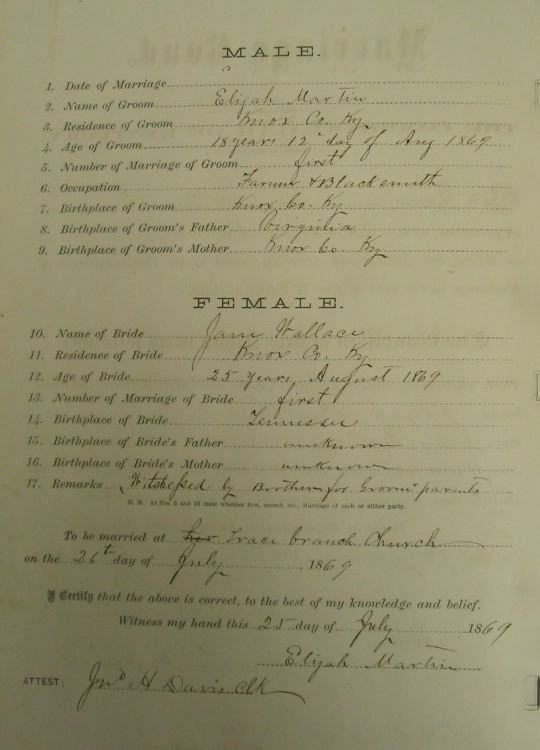 MALE.
1. Date of Marriage
2. Name of Groom Elijah Martin
3. Residence of Groom Knox Co. Ky
4. Age of Groom 18 years 12" day of Aug 1869
5. Number of Marriage of Groom first
6. Occupation Farmer & Blacksmith
7. Birthplace of Groom Knox Co. Ky
8. Birthplace of Groom's Father Virginia
9. Birthplace of Groom's Mother Knox Co Ky
FEMALE.
10. Name of Bride Jane Wallace
11. Residence of Bride Knox Co. Ky
12. Age of Bride 25 years, August 1869
13. Number of Marriage of Bride first
14. Birthplace of Bride Tennessee
15. Birthplace of Bride's Father unknown
16. Birthplace of Bride's Mother unknown
17. Remarks Witnessed by Brother for Groom parents
N. B. At Nos. 5 and 13 state whether first, second, etc., Marriage of each or either party.
To be married at Trace branch Church
on the 26th day of July 1869
I Certify that the above is correct, to the best of my knowledge and belief.
Witness my hand this 25 day of July 1869
Elijah Martin
ATTEST: Jno H Davis Clk